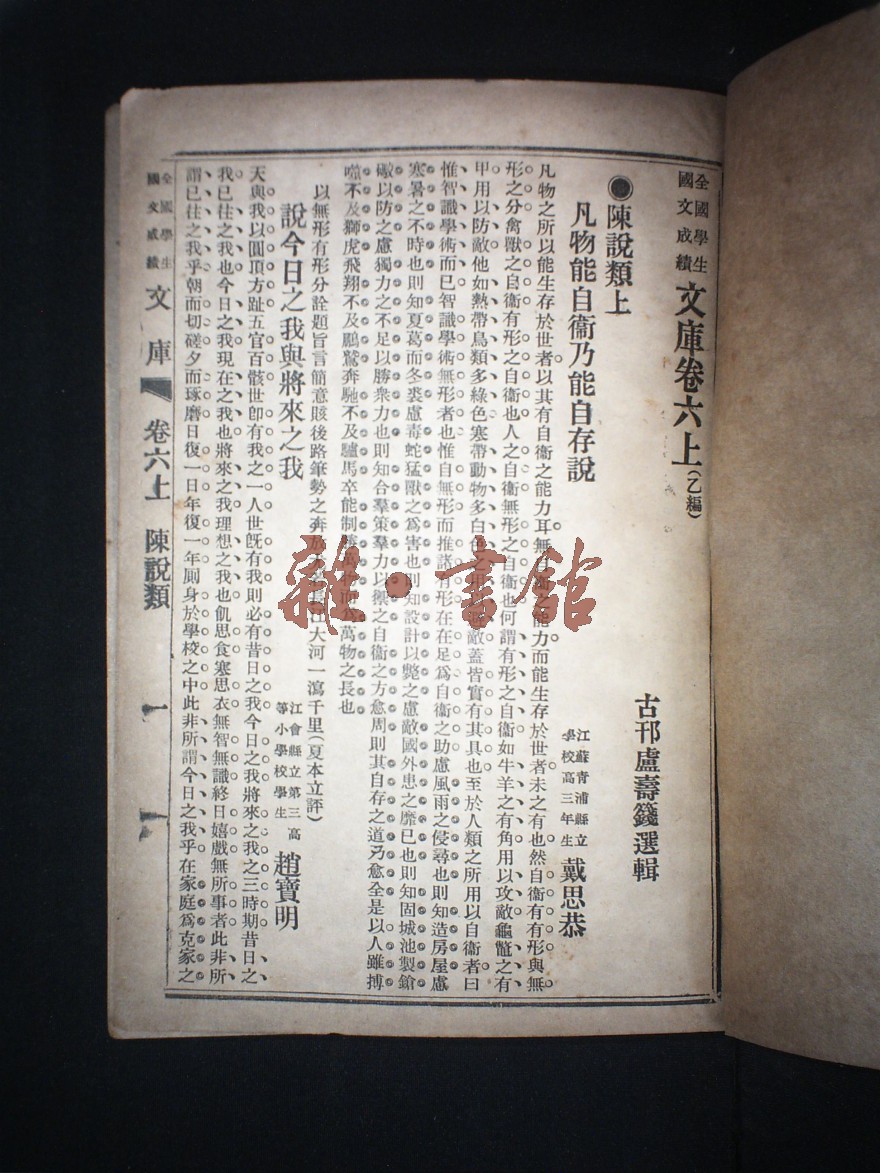 全國學生
國文成績
文庫卷六上(乙編)
古邗盧壽籛選輯
●陳說類上
凡物能自衞乃能自存說
江蘇青浦縣立
學校高三年生
戴思恭
凡物之所以能生存於世者以其有自衞之能力耳無自衞之能力而能生存於世者未之有也然自衞有有形與無
形之分禽獸之自衞有形之自衞也人之自衞無形之自衞也何謂有形之自衞如牛羊之有角用以攻敵龜鼈之有
甲用以防敵他如熱帶鳥類多綠色寒帶動物多白色敵蓋皆實有其具也至於人類之所用以自衞者曰
惟智識學術而已智識學術無形者也惟自無形而推諸有形在在足爲自衞之助慮風雨之侵尋也則知造房屋慮
寒暑之不時也則知夏葛而冬裘慮毒蛇猛獸之爲害也則知設計以斃之慮敵國外患之靡已也則知固城池製鎗
礮以防之慮獨力之不足以勝衆力也則知合羣策羣力以禦之自衞之方愈周則其自存之道乃愈全是以人雖搏
噬不及獅虎飛翔不及鵬鷲奔馳不及驢馬卒能制勝萬物而爲萬物之長也
以無形有形分詮題旨言簡意賅後路筆勢之奔放江大河一瀉千里(夏本立評)
說今日之我與將來之我
江會縣立第三高
等小學校學生
趙寶明
天與我以圓頂方趾五官百骸世卽有我之一人世旣有我則必有昔日之我今日之我將來之我之三時期昔日之
我已往之我也今日之我現在之我也將來之我理想之我也飢思食寒思衣無智無識終日嬉戲無所事者此非所
謂已往之我乎朝而切磋夕而琢磨日復一日年復一年厠身於學校之中此非所謂今日之我乎在家庭爲克家之
全國學生
國文成績
文庫
卷六上 陳說類
一
一
雜·書館